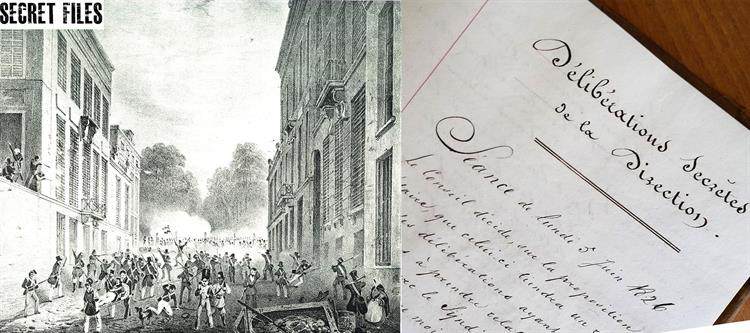 SECRET FILES
Délibérations Secrètes
de la Direction.
Séance de lundi 5 Juin 1826
Le Conseil décide, sur la proposition
que celui-ci tiendra un
délibérations ayant
à prendre
le